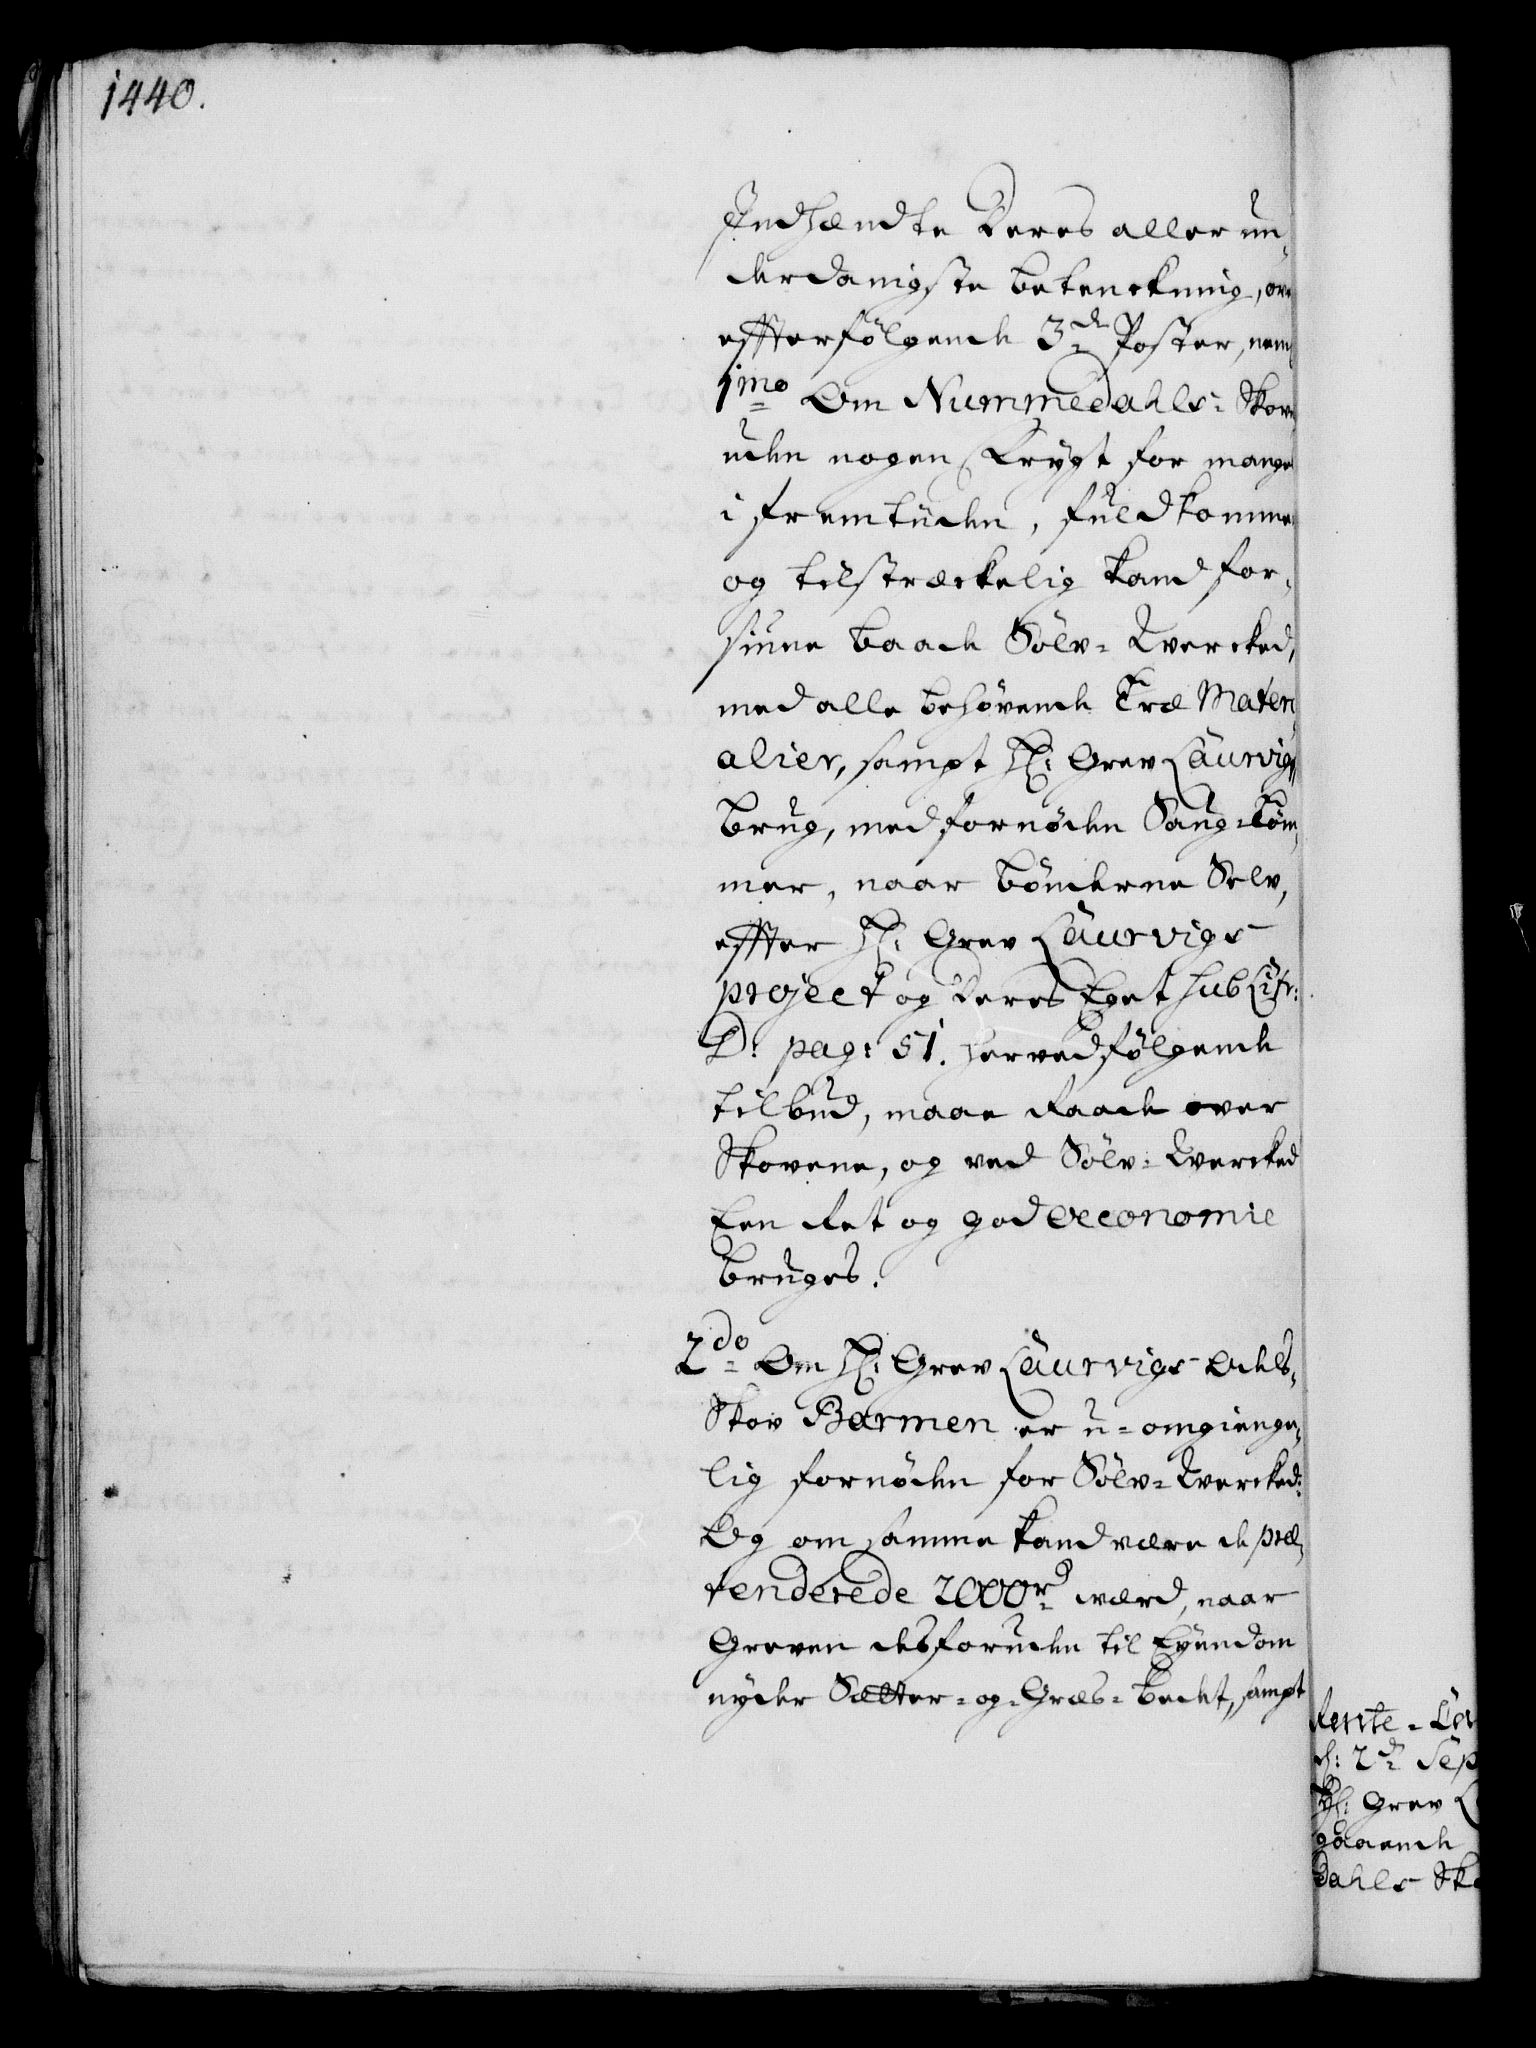 1440.
Indhændte deres allerun-
derdanigste betenckning, ov
effterfølgende 3de Poster, nem
1mo Om Nummedahls-Skov
uden nogen Frygt for mange
i fremtiiden, fuldkomme
og tilstræckelig kand for-
siune baade Sølv-Wercked,
med alle behøvende Træ Materi
alier, sampt Hr: Grev Laurvigs
brug, med fornøden Saug-tøm-
mer, naar bønderne Selv,
effter Hr: Grev Laurvigs
project og deres Eget sub Litr:
D: pag: 51. herved følgende
tilbud, maae Raade over
Skovene, og ved Sølv-Wercked
Een Ret og god oeconomie
bruges.
2do Om Hr: Grev Laurvigs Odels-
Skov Barmen er u-omgienge-
lig fornøden for Sølv-Wercked:
Og om samme kand være de præ-
tenderede 2000 rd værd, naar
Greven desforuden til Eyendom
nyder Sætter-og-Græs-beedt, sampt
Rente-
d: 2de Sep
Hr: Grev L
gaaende
dahls Sko